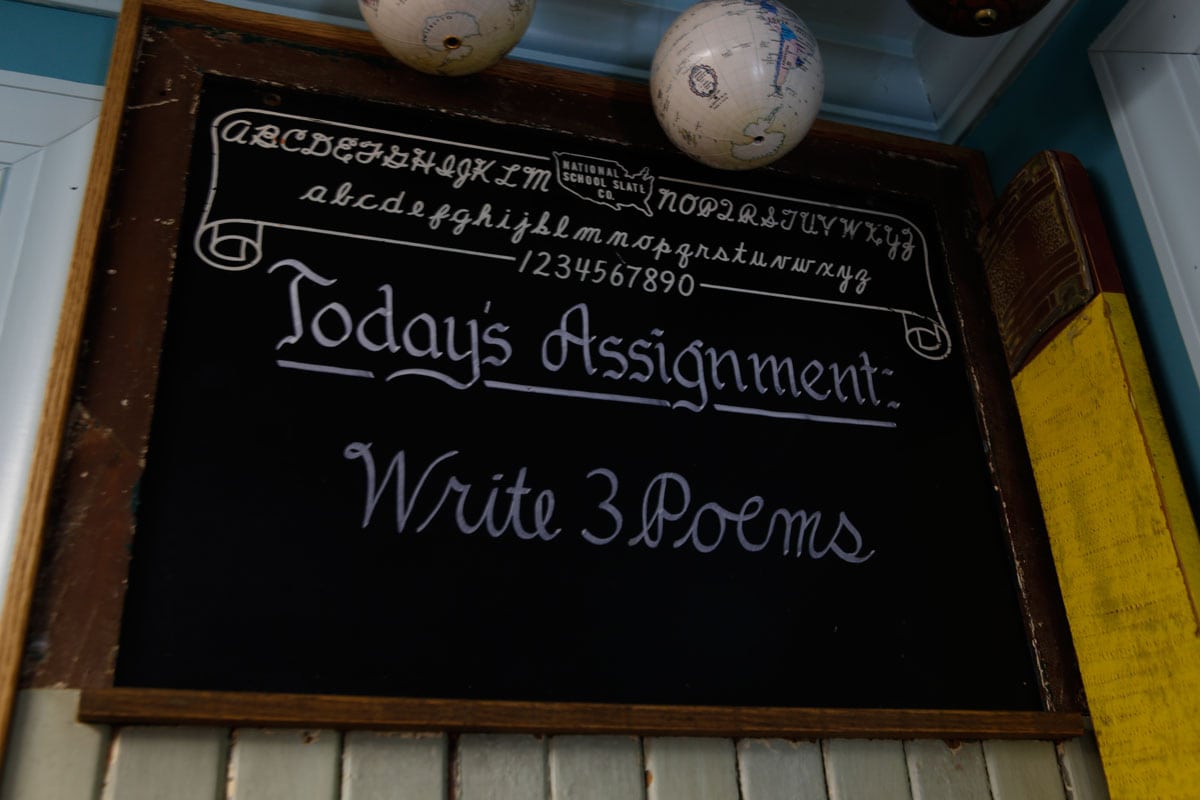 ABCDEFGHIJKLM
NATIONAL
SCHOOL SLATE
CO.
NOPQRSTUVWXYZ
abcdefghijklmnopqrstuvwxyz
1234567890
Today's Assignment:
Write 3 Poems